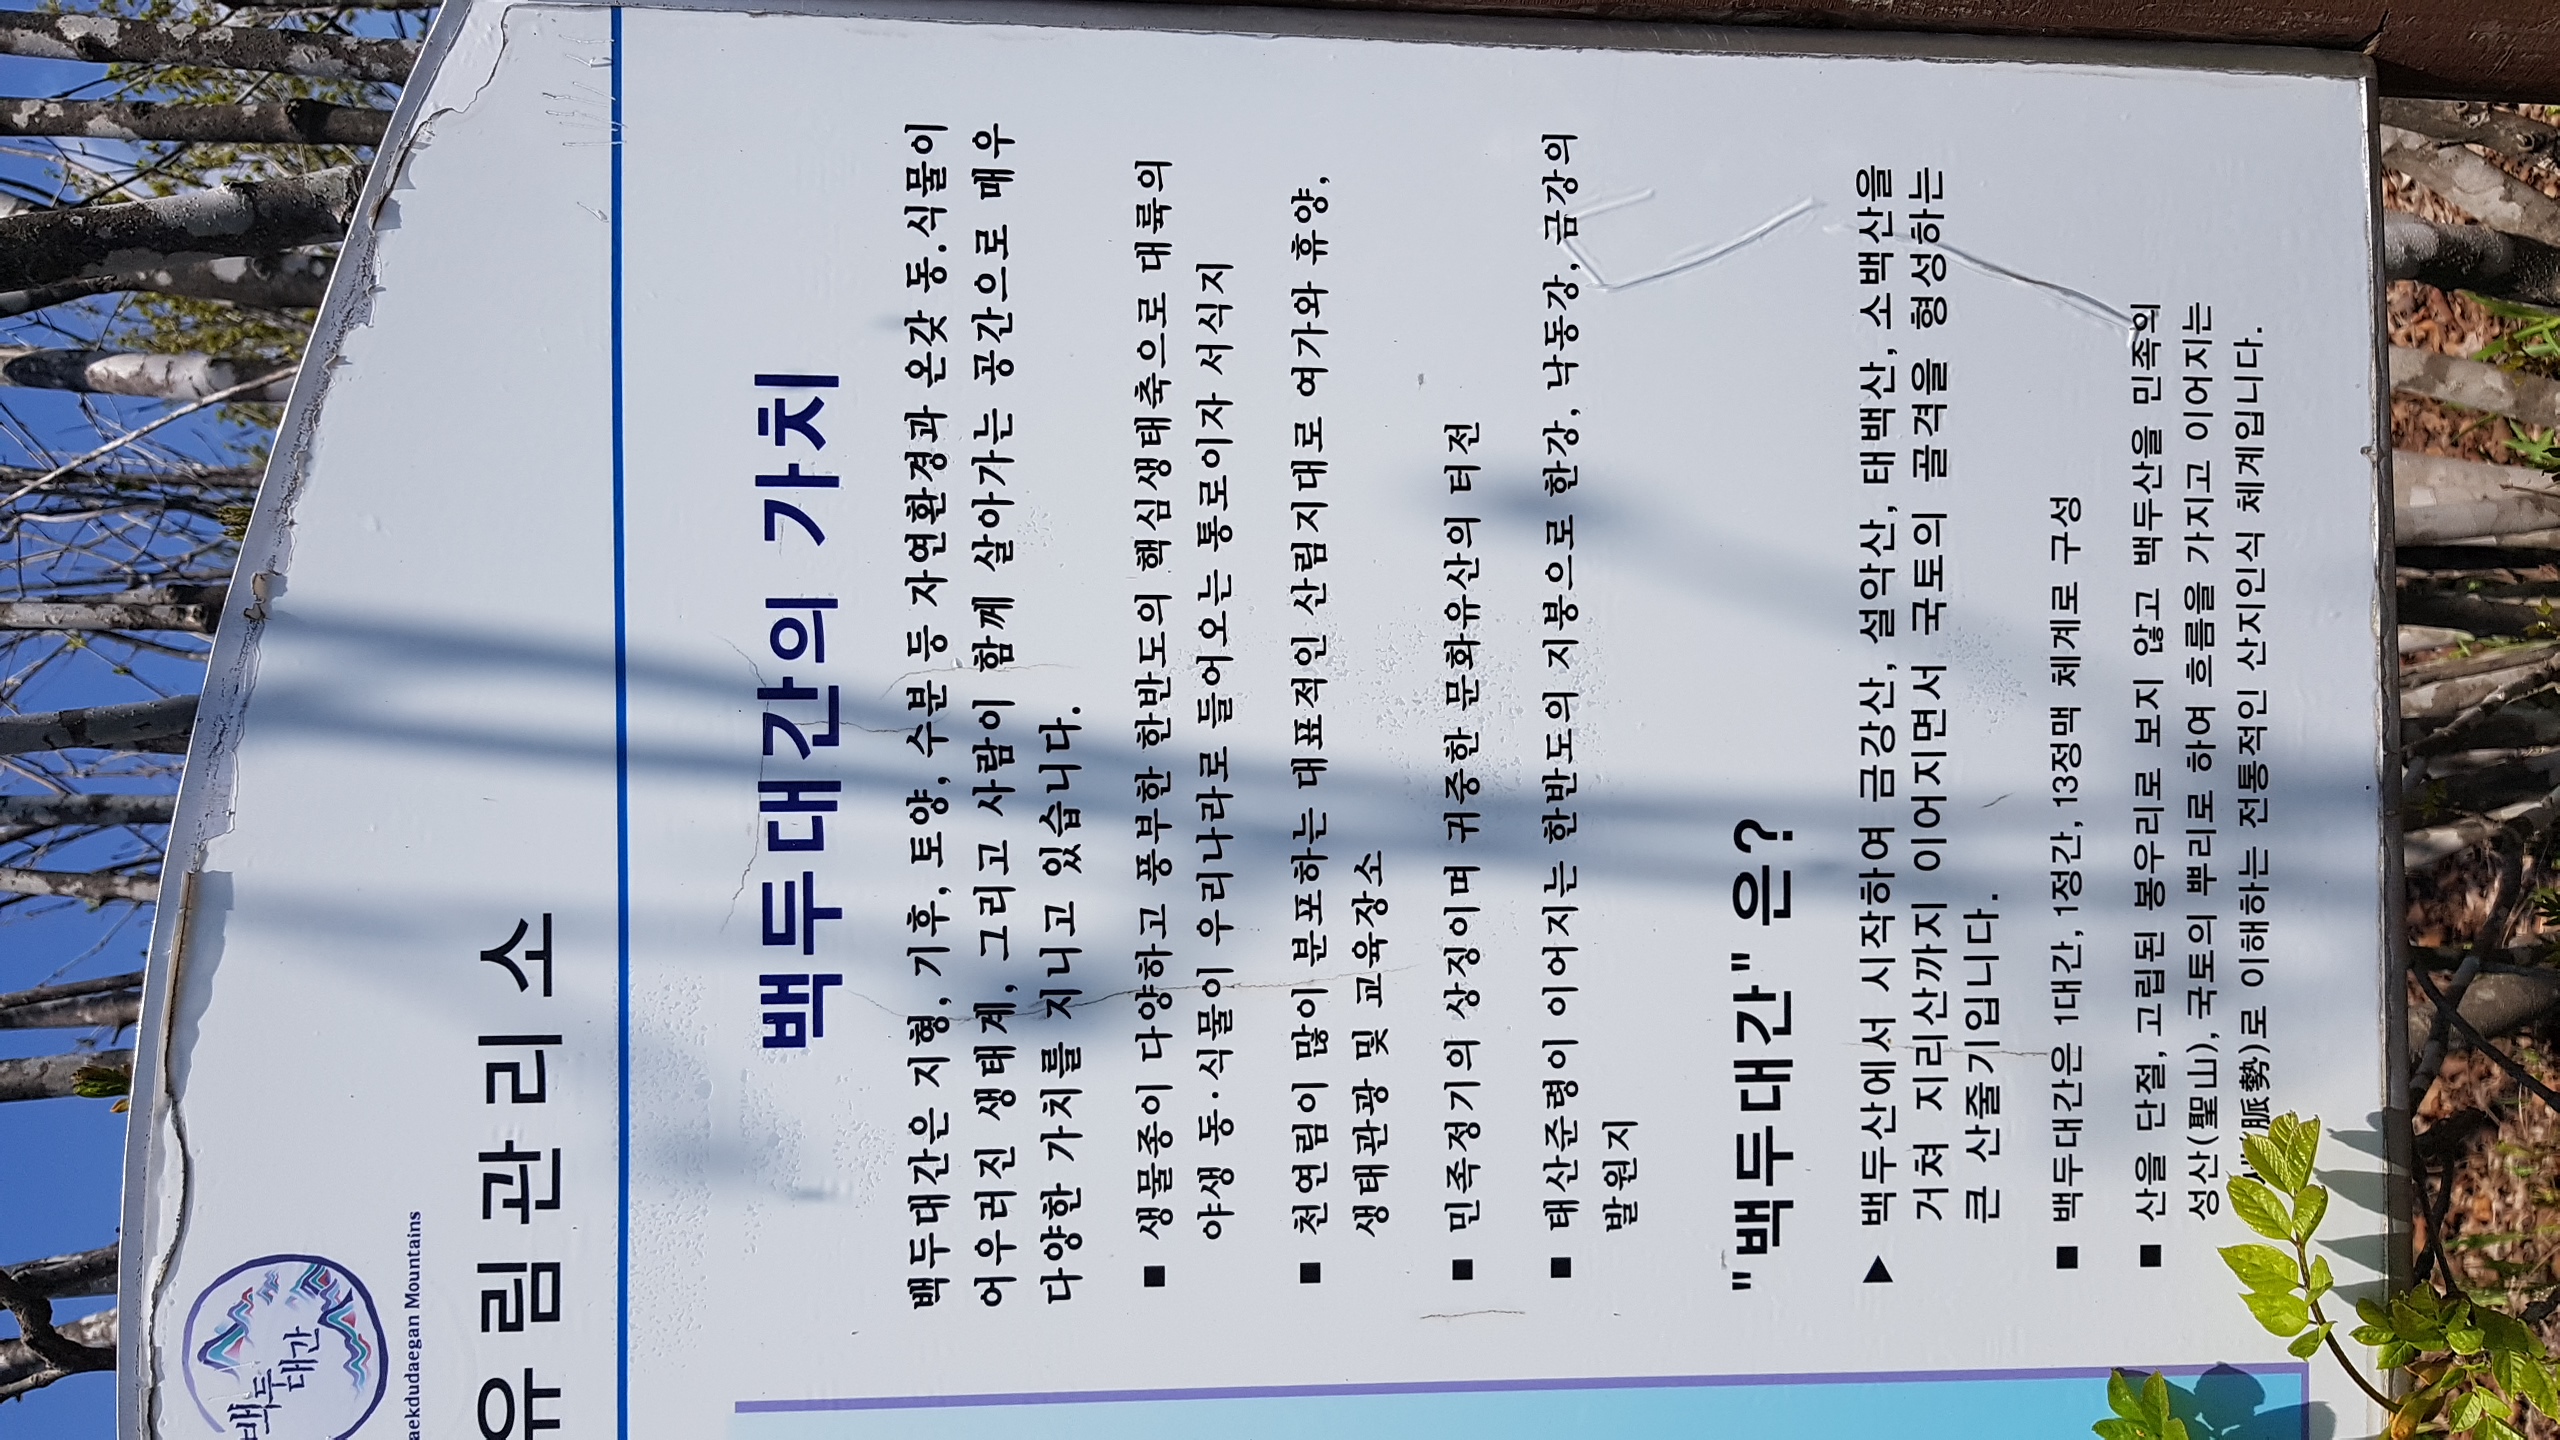 백두
대간
aekdudaegan Mountains
유림관리소
백두대간의 가치
백두대간은 지형, 기후, 토양, 수분 등 자연환경과 온갖 동·식물이
어우러진 생태계, 그리고 사람이 함께 살아가는 공간으로 매우
다양한 가치를 지니고 있습니다.
■ 생물종이 다양하고 풍부한 한반도의 핵심생태축으로 대륙의
야생 동·식물이 우리나라로 들어오는 통로이자 서식지
■ 천연림이 많이 분포하는 대표적인 산림지대로 여가와 휴양,
생태관광 및 교육장소
■ 민족정기의 상징이며 귀중한 문화유산의 터전
■ 태산준령이 이어지는 한반도의 지붕으로 한강, 낙동강, 금강의
발원지
"백두대간" 은?
▶ 백두산에서 시작하여 금강산, 설악산, 태백산, 소백산을
거쳐 지리산까지 이어지면서 국토의 골격을 형성하는
큰 산줄기입니다.
■ 백두대간은 1대간, 1정간, 13정맥 체계로 구성
■ 산을 단절, 고립된 봉우리로 보지 않고 백두산을 민족의
성산(聖山), 국토의 뿌리로 하여 흐름을 가지고 이어지는
(脈勢)로 이해하는 전통적인 산지인식 체계입니다.